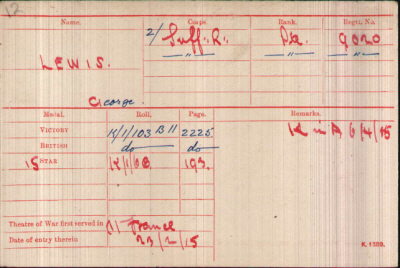 Name. Corps. Rank. Regtl. No.
2/ Suff. R. Pte 9020
LEWIS. — „ — — „ — — „ —
George.
Medal. Roll. Page. Remarks.
VICTORY K/1/103 B11 2225 K in A 6/4/15
BRITISH do do
15 STAR K/1/6 193.
Theatre of War first served in (1) France
Date of entry therein 23/2/15
K. 1380.